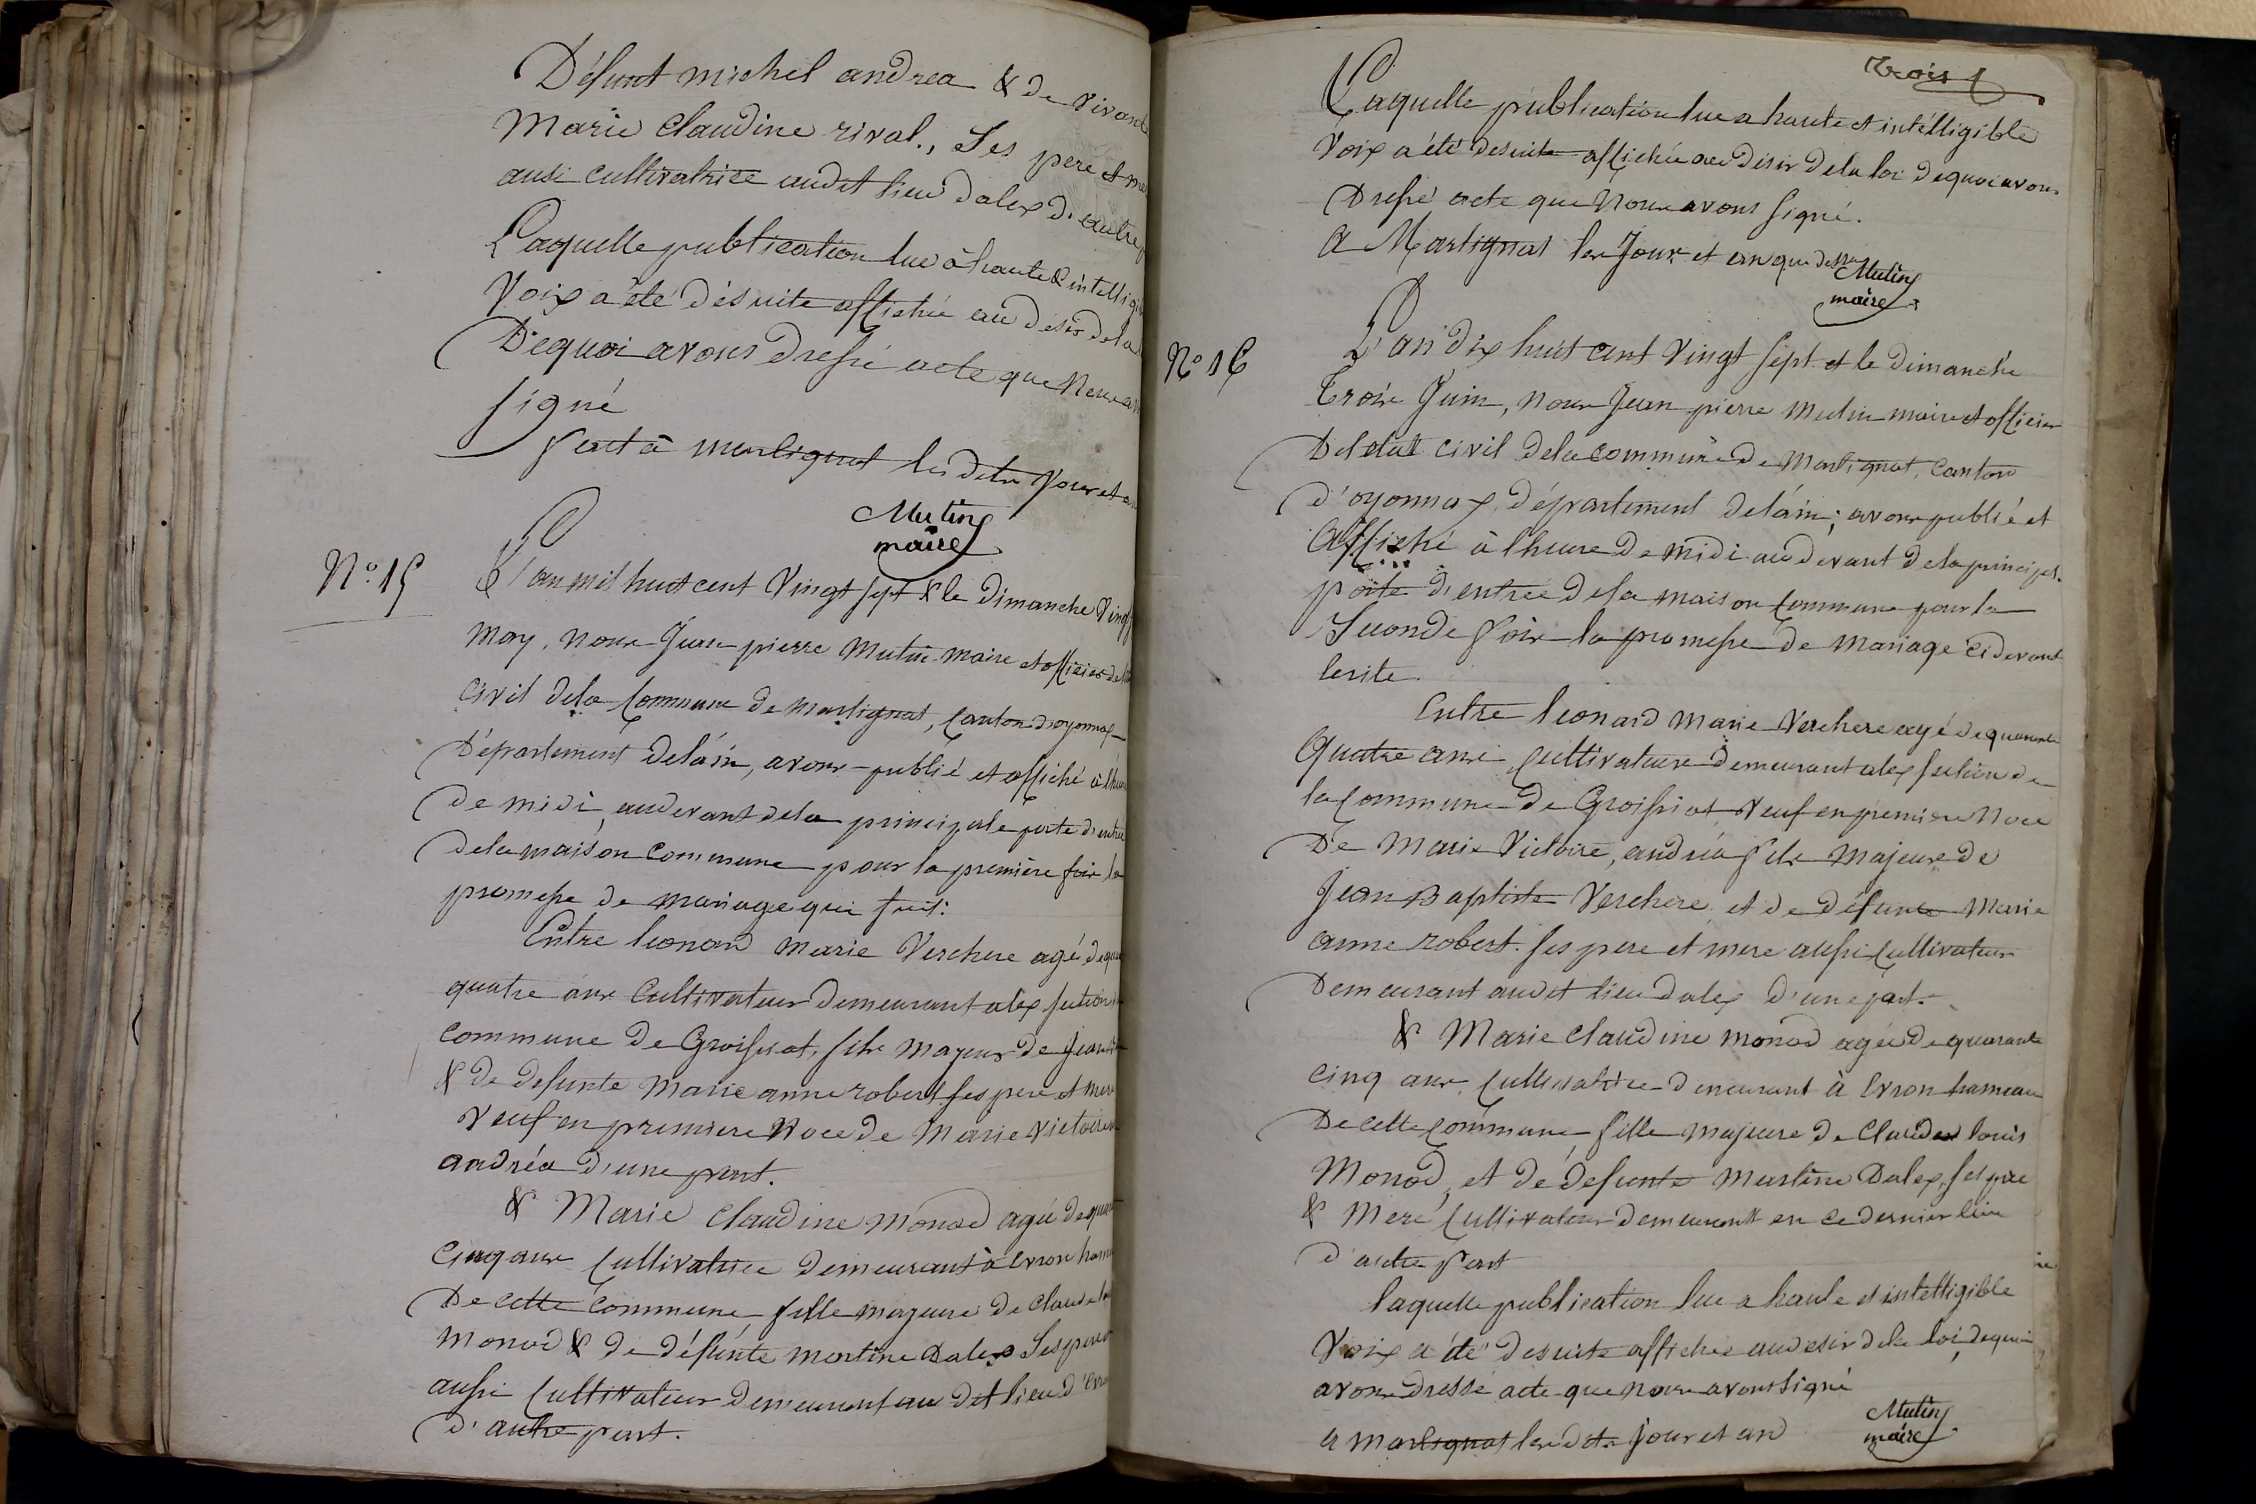 Défunt michel andrea & de vivante
Marie Claudine rival., Ses pere et me
ausi cultivatrice audit lieu dalex d'autre
Laquelle publication lue à haute & intelligi
Voix a été désuite affichée au désir dela
Dequoi avons dressé acte que Nous av
signé
fait à martignat lesdits Jour et an
Mutin
maire
N° 15
L'an mil huit cent Vingt sept & le dimanche Vingt
may, nous Jean pierre Mutin maire et officier de l'
Civil dela Commune de martignat, Canton d'oyonnax
Département delain, avons publié et affiché à l'heure
de midi, audevant dela principale porte d'entrée
dela maison Commune pour la première fois la
promesse de mariage qui suit:
Entre leonard Marie Verchere agé de qua
quatre ans Cultivateur demeurant alex section
commune de Groissiat, fils majeur de Jean
& de defunte Marie anne robert ses pere et mere
Veuf en premiere Noce de Marie Victoire
andréa d'une part.
& Marie Claudine Monod agée de quar
Cinq ans Cultivatrice demeurant à Evron ham
De cette Commune, fille majeure de Claude lo
Monod & de défunte martine Dalex Ses pere
aussi Cultivateur demeurant au dit lieu d'Evr
d'autre part.
Trois
Laquelle publication lue a haute et intélligible
Voix a été desuite affichée au désir dela loi dequoi avons
Dressé acte que Nous avons signé.
A Martignat les Jour et an que dessus
Mutin
maire
N° 16
L'an dix huit cent Vingt sept et le dimanche
Trois Juin, nous Jean pierre Mutin maire et officier
Del état civil dela commune de Martignat, Canton
d'oyonnax, département delain; avons publié et
Affiché à lheure de midi audevant dela principale
porte d'entrée dela maison Commune pour la
Seconde fois la promesse de mariage cidevant
lesite.
Entre leonard Marie Verchere agé de quarante
Quatre ans, Cultivateur demeurant alex section de
la Commune de Groissiat Veuf en premiere Noce
De Marie Victoire, andréa fils majeur de
Jean Baptiste Verchere et de défunte Marie
anne robert. ses pere et mere aussi Cultivateur
Demeurant audit lieu dalex d'une part.
& Marie Claudine monod agée de quarante
cinq ans Cultivatrice demeurant à Evron hameau
De cette Commune, fille majeure de Claude louis
Monod, et de défunte Martine Dalex, ses pere
& Mere Cultivateur demeurant en ce dernier lieu
d'autre part
laquelle publication lue a haute et intelligible
Voix a été desuite affichée au desir dela loi, dequoi
avons dressé acte que nous avons signé
a martignat les dits jour et an
Mutin
maire